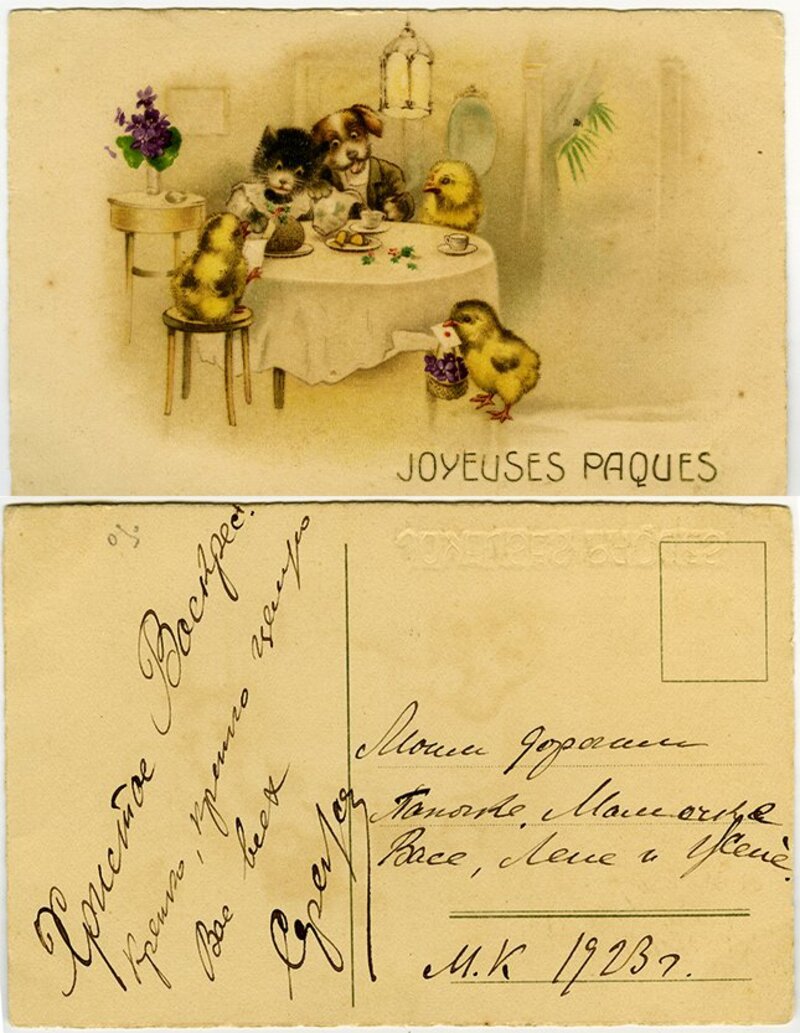 JOYEUSES PAQUES
Христос Воскрес!
Крепко, крепко целую
Вас всех
Моим дорогим
Папочке, Мамочке
Васе, Лене и Жене.
М.К 1923 г.